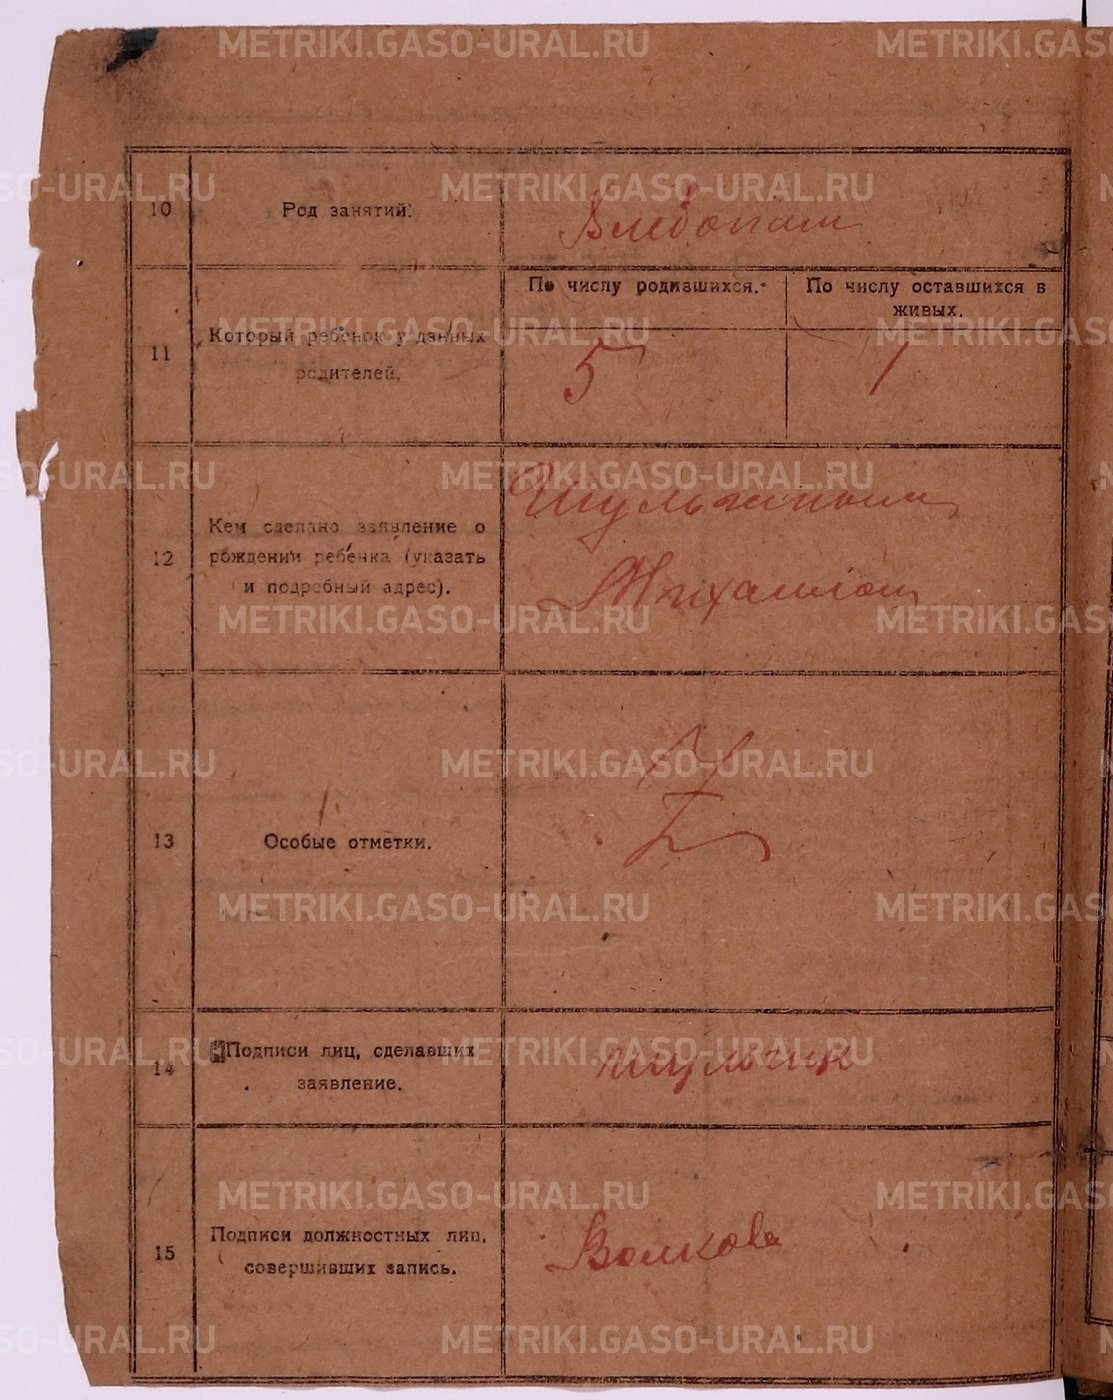 METRIKI.GASO-URAL.RU
10 Род занятий. Хлебопаш
По числу родившихся. По числу оставшихся в
живых.
11 Который ребенок у данных
родителей.
5 1
Шульгиным
12 Кем сделано заявление о
рождении ребенка (указать
и подробный адрес).
Михаилом
13 Особые отметки.
14 Подписи лиц, сделавших
заявление.
Шульгин
15 Подписи должностных лиц,
совершивших запись.
Волкова